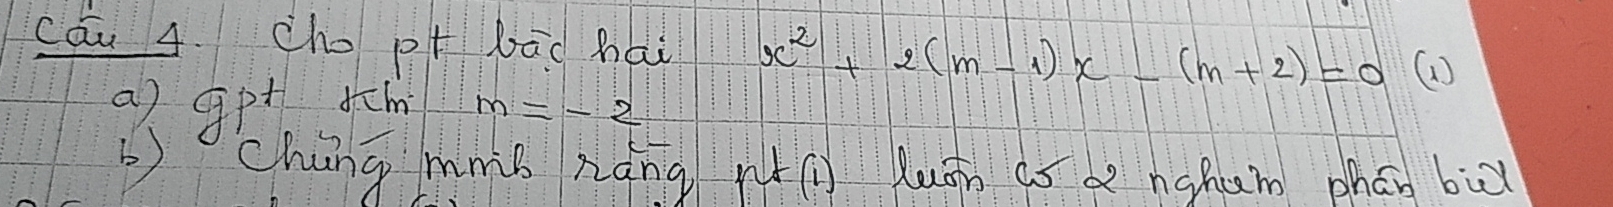 Câu 4. Cho pt bậc hai x² + 2(m - 1)x - (m + 2) = 0 (1)
a) gpt khi m = - 2
b) Chứng minh rằng pt (1) luôn có 2 nghiệm phân biệt